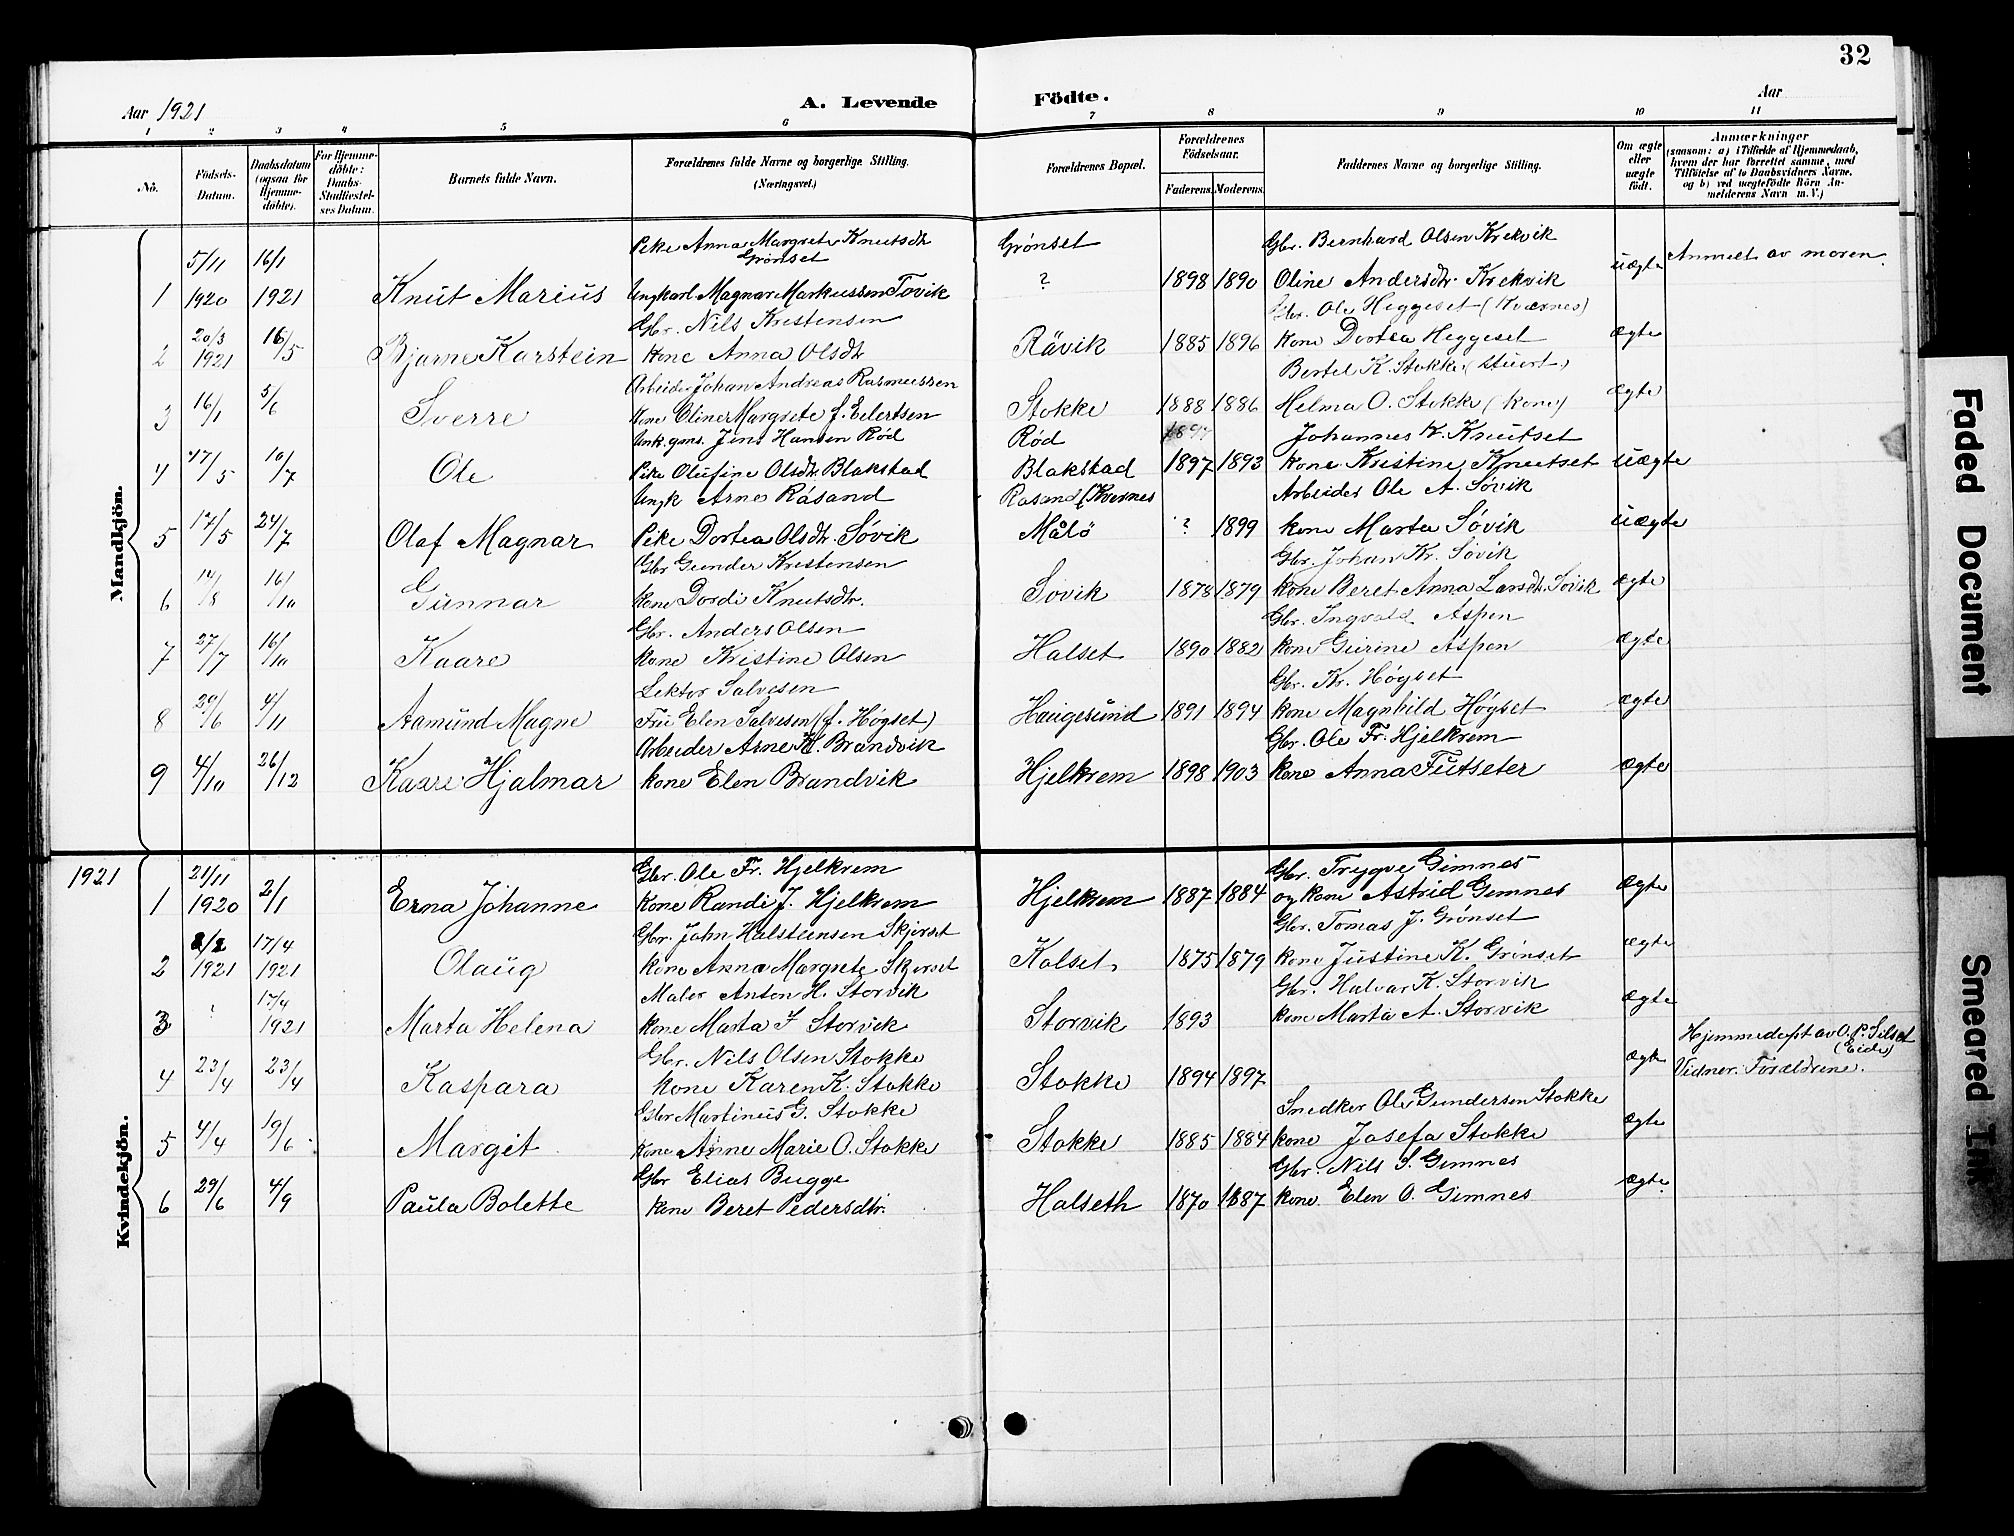 32
Aar 1921
A. Levende Födte.
Aar
1 2 3 4 5 6 7 8 9 10 11
No.
Födsels-Datum.
Daabsdatum (ogsaa for Hjemme-döbte).
For Hjemme-döbte: Daabs-Stadfæstel-ses Datum.
Barnets fulde Navn.
Forældrenes fulde Navne og borgerlige Stilling. (Næringsvei.)
Forældrenes Bopæl.
Forældrenes Födselsaar.
Faderens. Moderens.
Faddernes Navne og borgerlige Stilling.
Om ægte eller uægte födt.
Anmærkninger (saasom: a) i Tilfælde af Hjemmedaab, hvem der har forrettet samme, med Tilföielse af to Daabsvidners Navne, og b) ved uægtefödte Börn An-melderens Navn m. V.)
Mandkjön.
Pike Anna Margrete Knutsdtr Grönset Grönset Gbr. Bernhard Olsen Krekvik
1 5/11 1920 16/1 1921 Knut Marius Ungkarl Magnar Markussen Tovik ? 1898 1890 Oline Andersdtr. Krekvik uægte Anmelt av moren.
Gbr. Nils Kristensen Gbr. Ole Heggeset (Kværnes)
2 20/3 1921 16/5 Bjarne Karstein kone Anna Olsdtr Rävik 1885 1896 kone Dortea Heggeset ægte
Arbeider Johan Andreas Rasmussen Bertel K. Stokke (stuert)
3 16/1 5/6 Sverre kone Oline Margrete f. Eilertsen Stokke 1888 1886 Helma O. Stokke (kone) ægte
Unk. gms. Jens Hansen Rød Rød 1897 Johannes K. Knutset
4 17/5 10/7 Ole Pike Olufine Olsdtr. Blakstad Blakstad 1897 1893 kone Kristine Knutset uægte
Ungk Arne Råsand Rasand (Kvernes Arbeider Ole A. Søvik
5 17/5 24/7 Olaf Magnar Pike Dortea Olsdtr. Søvik Målö ? 1899 kone Marta Søvik uægte
Gbr Gunder Kristensen Gbr. Johan Kr. Søvik
6 12/8 16/10 Gunnar kone Dordi Knutsdtr. Sovik 1878 1879 kone Beret Anna Larsdtr. Søvik ægte
Gbr. Anders Olsen Gbr. Ingvald Aspen
7 27/7 16/10 Kaare kone Kristine Olsen Halset 1890 1882 kone Gurine Aspen ægte
Lektor Salvesen Gbr. Kr. Høgset
8 29/6 4/11 Aamund Magne Frue Elen Salvesen (f. Høgset) Haugesund 1891 1894 kone Magnhild Høgset ægte
Arbeider Arne K. Brandvik Gbr. Ole Fr. Hjelkrem
9 4/10 26/12 Kaare Hjalmar kone Elen Brandvik Hjelkrem 1898 1903 kone Anna Futseter ægte
Kvindekjön.
1921
Gbr. Ole Fr. Hjelkrem Gbr. Trygve Gimnes
1 21/11 1920 2/1 Erna Johanne kone Randi J. Hjelkrem Hjelkrem 1887 1884 og kone Astrid Gimnes ægte
Gbr. John Halstensen Skjerset Gbr. Tomas J. Grønset
2 2/2 1921 17/4 1921 Olaug kone Anna Margrete Skjerset Kalset 1875 1879 kone Justine K. Grønset ægte
Maler Anton H. Storvik Gbr. Halvar K. Storvik
3 ? 17/4 1921 Marta Helena kone Marta I Storvik Storvik 1893 kone Marta A. Storvik ægte
Gbr. Nils Olsen Stokke
4 23/4 23/4 Kaspara kone Karen K. Stokke Stokke 1894 1897 ægte Hjemmedøpt av O. P. Silset (Eide) Vidner: Forældrene.
Gbr Martinus G. Stokke Snedker Ole Gundersen Stokke
5 4/4 19/6 Margit kone Anne Marie O. Stokke Stokke 1885 1884 kone Josefa Stokke ægte
Gbr Elias Bugge Gbr. Nils S. Gimnes
6 29/6 4/9 Paula Bolette kone Beret Pedersdtr. Halseth 1870 1887 kone Elen O. Gimnes ægte
Faded Document
Smeared Ink